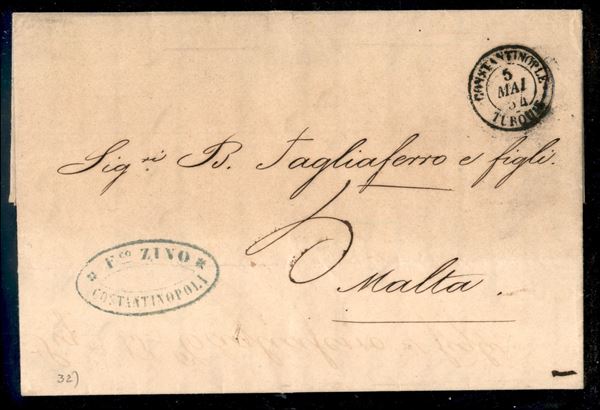 CONSTANTINOPLE
5
MAI
54
TURQUIE
Sig.ri B. Tagliaferro e figli.
6
Malta.
* F.co ZINO *
COSTANTINOPOLI
32)